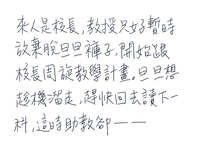 來人是校長,教授只好暫時
放棄脫旦旦褲子,開始跟
校長周旋教學計畫。旦旦想
趁機溜走,趕快回去讀下一
科,這時助教卻——